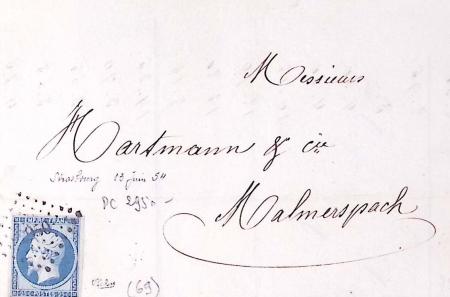 Messieurs
Hartmann & cie
Strasbourg 13 juin 54
PC 2950 -
Malmerspach
EMPIRE FRANC
25 POSTES 25
(69)